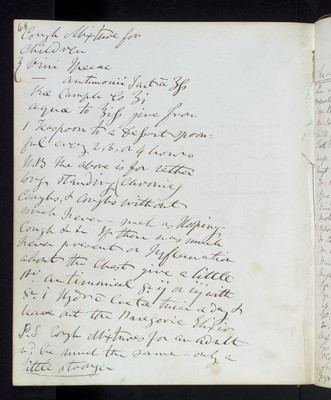 68
Cough Mixture for
Children
Vini Ipecac
— Antimonii Tart ʒss
Tinc Camph Co ʒi
aqua to ʒiss give from
1 Teaspoon to a desert spoon-
ful every 2, 3, or 4 hours
N.B The above is for either
long standing (Chronic)
Coughs, & Coughs without
much Fever — such as Hooping
Cough &c If there was much
Fever present or Inflammation
about the Chest give a little
antimonial gr ij or iij with
gr. i Hydr c Creta twice a day &
leave out the Paregoric Elixir
P.S Cough Mixtures for an adult
wd be much the same — only a
little stronger